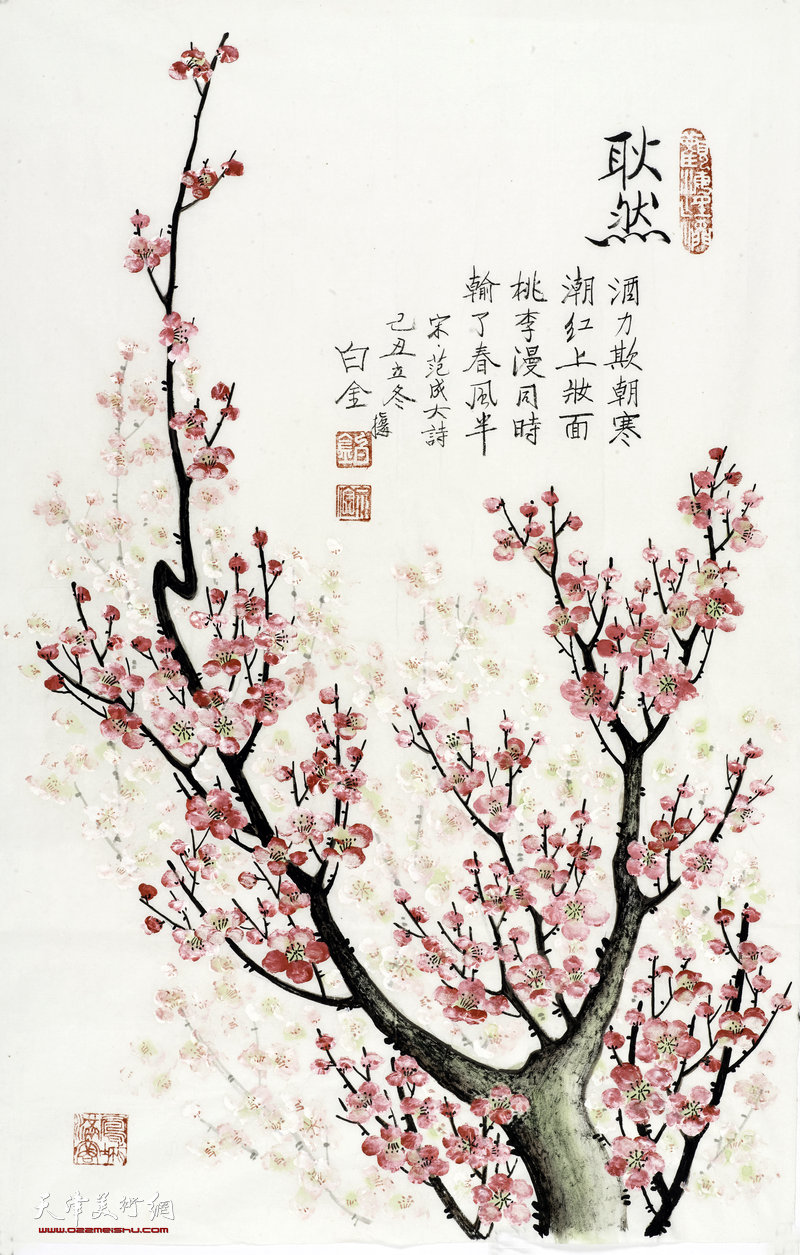 耿然
酒力欺朝寒
潮红上妝面
桃李漫同時
輸了春风半
宋·范成大詩
己丑立冬
白金
天津美術網
www.022meishu.com